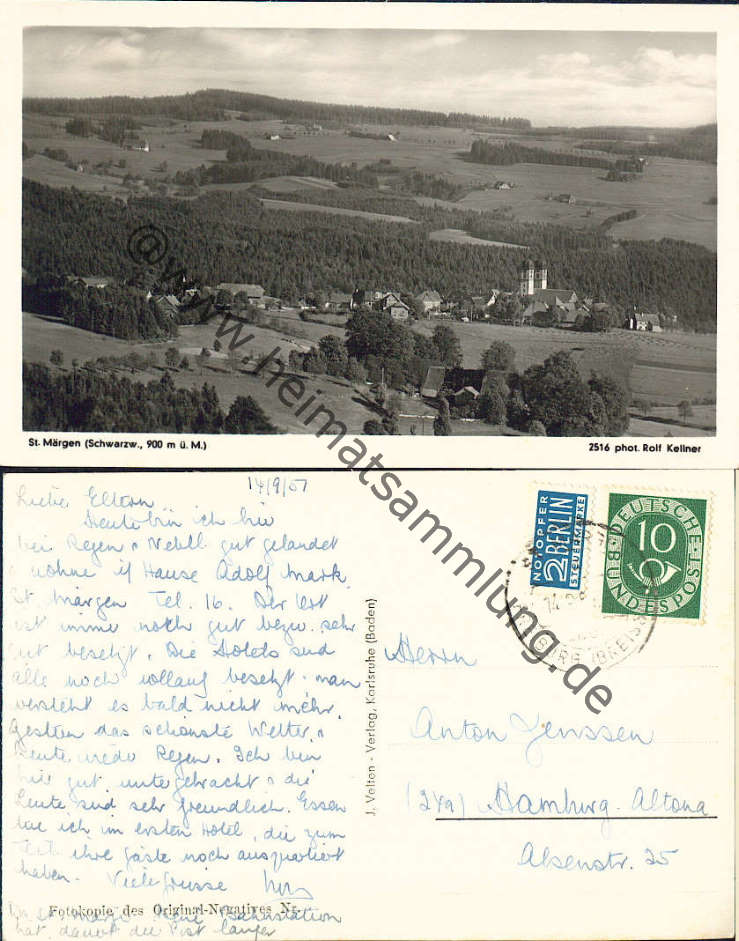 St. Märgen (Schwarzw., 900 m ü. M.)
2516 phot. Rolf Kellner
www.heimatsammlung.de
14/9/51
Liebe Eltern
Heute bin ich hier
bei Regen u Nebel gut gelandet
u wohne i/ Hause Adolf Mark
St. Märgen Tel. 16. Der Ort
ist immer noch gut bezw. sehr
gut besetzt. Die Hotels sind
alle noch vollauf besetzt. man
versteht es bald nicht mehr.
Gestern das schönste Wetter,
heute wieder Regen. Ich bin
hier gut untergebracht u die
Leute sind sehr freundlich. Essen
tue ich im ersten Hotel, die zum
Teil ihre Gäste noch ausquartiert
haben. Viele Grüsse
Da St. Märgen keine Bahnstation
hat, dauert die Post länger
Fotokopie des Original-Negatives Nr.
J. Velten - Verlag, Karlsruhe (Baden)
NOTOPFER
2 BERLIN
STEUERMARKE
DEUTSCHE BUNDESPOST
10
Herrn
Anton Jenssen
(24a) Hamburg-Altona
Alsenstr. 25